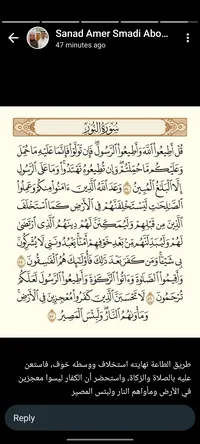 Sanad Amer Smadi Abo...
47 minutes ago
سُورَةُ النُّورِ
قُلْ أَطِيعُوا۟ ٱللَّهَ وَأَطِيعُوا۟ ٱلرَّسُولَ ۖ فَإِن تَوَلَّوْا۟ فَإِنَّمَا عَلَيْهِ مَا حُمِّلَ
وَعَلَيْكُم مَّا حُمِّلْتُمْ ۖ وَإِن تُطِيعُوهُ تَهْتَدُوا۟ ۚ وَمَا عَلَى ٱلرَّسُولِ
إِلَّا ٱلْبَلَٰغُ ٱلْمُبِينُ ٥٤ وَعَدَ ٱللَّهُ ٱلَّذِينَ ءَامَنُوا۟ مِنكُمْ وَعَمِلُوا۟
ٱلصَّٰلِحَٰتِ لَيَسْتَخْلِفَنَّهُمْ فِى ٱلْأَرْضِ كَمَا ٱسْتَخْلَفَ
ٱلَّذِينَ مِن قَبْلِهِمْ وَلَيُمَكِّنَنَّ لَهُمْ دِينَهُمُ ٱلَّذِى ٱرْتَضَىٰ
لَهُمْ وَلَيُبَدِّلَنَّهُم مِّنۢ بَعْدِ خَوْفِهِمْ أَمْنًا ۚ يَعْبُدُونَنِى لَا يُشْرِكُونَ
بِى شَيْـًٔا ۚ وَمَن كَفَرَ بَعْدَ ذَٰلِكَ فَأُو۟لَٰٓئِكَ هُمُ ٱلْفَٰسِقُونَ ٥٥
وَأَقِيمُوا۟ ٱلصَّلَوٰةَ وَءَاتُوا۟ ٱلزَّكَوٰةَ وَأَطِيعُوا۟ ٱلرَّسُولَ لَعَلَّكُمْ
تُرْحَمُونَ ٥٦ لَا تَحْسَبَنَّ ٱلَّذِينَ كَفَرُوا۟ مُعْجِزِينَ فِى ٱلْأَرْضِ ۚ
وَمَأْوَىٰهُمُ ٱلنَّارُ ۖ وَلَبِئْسَ ٱلْمَصِيرُ ٥٧
طريق الطاعة نهايته استخلاف ووسطه خوف، فاستعن
عليه بالصلاة والزكاة، واستحضر أن الكفار ليسوا معجزين
في الأرض ومأواهم النار ولبئس المصير
Reply